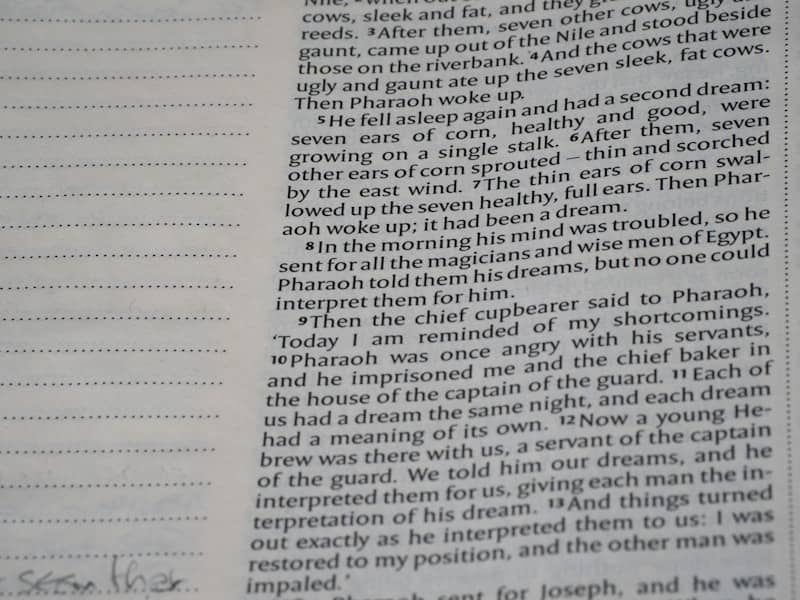 cows, sleek and fat, and they
reeds. ³After them, seven other cows, ugly
gaunt, came up out of the Nile and stood beside
those on the riverbank. ⁴And the cows that were
ugly and gaunt ate up the seven sleek, fat cows.
Then Pharaoh woke up.
⁵He fell asleep again and had a second dream:
seven ears of corn, healthy and good, were
growing on a single stalk. ⁶After them, seven
other ears of corn sprouted – thin and scorched
by the east wind. ⁷The thin ears of corn swal-
lowed up the seven healthy, full ears. Then Phar-
aoh woke up; it had been a dream.
⁸In the morning his mind was troubled, so he
sent for all the magicians and wise men of Egypt.
Pharaoh told them his dreams, but no one could
interpret them for him.
⁹Then the chief cupbearer said to Pharaoh,
‘Today I am reminded of my shortcomings.
¹⁰Pharaoh was once angry with his servants,
and he imprisoned me and the chief baker in
the house of the captain of the guard. ¹¹Each of
us had a dream the same night, and each dream
had a meaning of its own. ¹²Now a young He-
brew was there with us, a servant of the captain
of the guard. We told him our dreams, and he
interpreted them for us, giving each man the in-
terpretation of his dream. ¹³And things turned
out exactly as he interpreted them to us: I was
restored to my position, and the other man was
impaled.’
Pharaoh sent for Joseph, and he was
seen